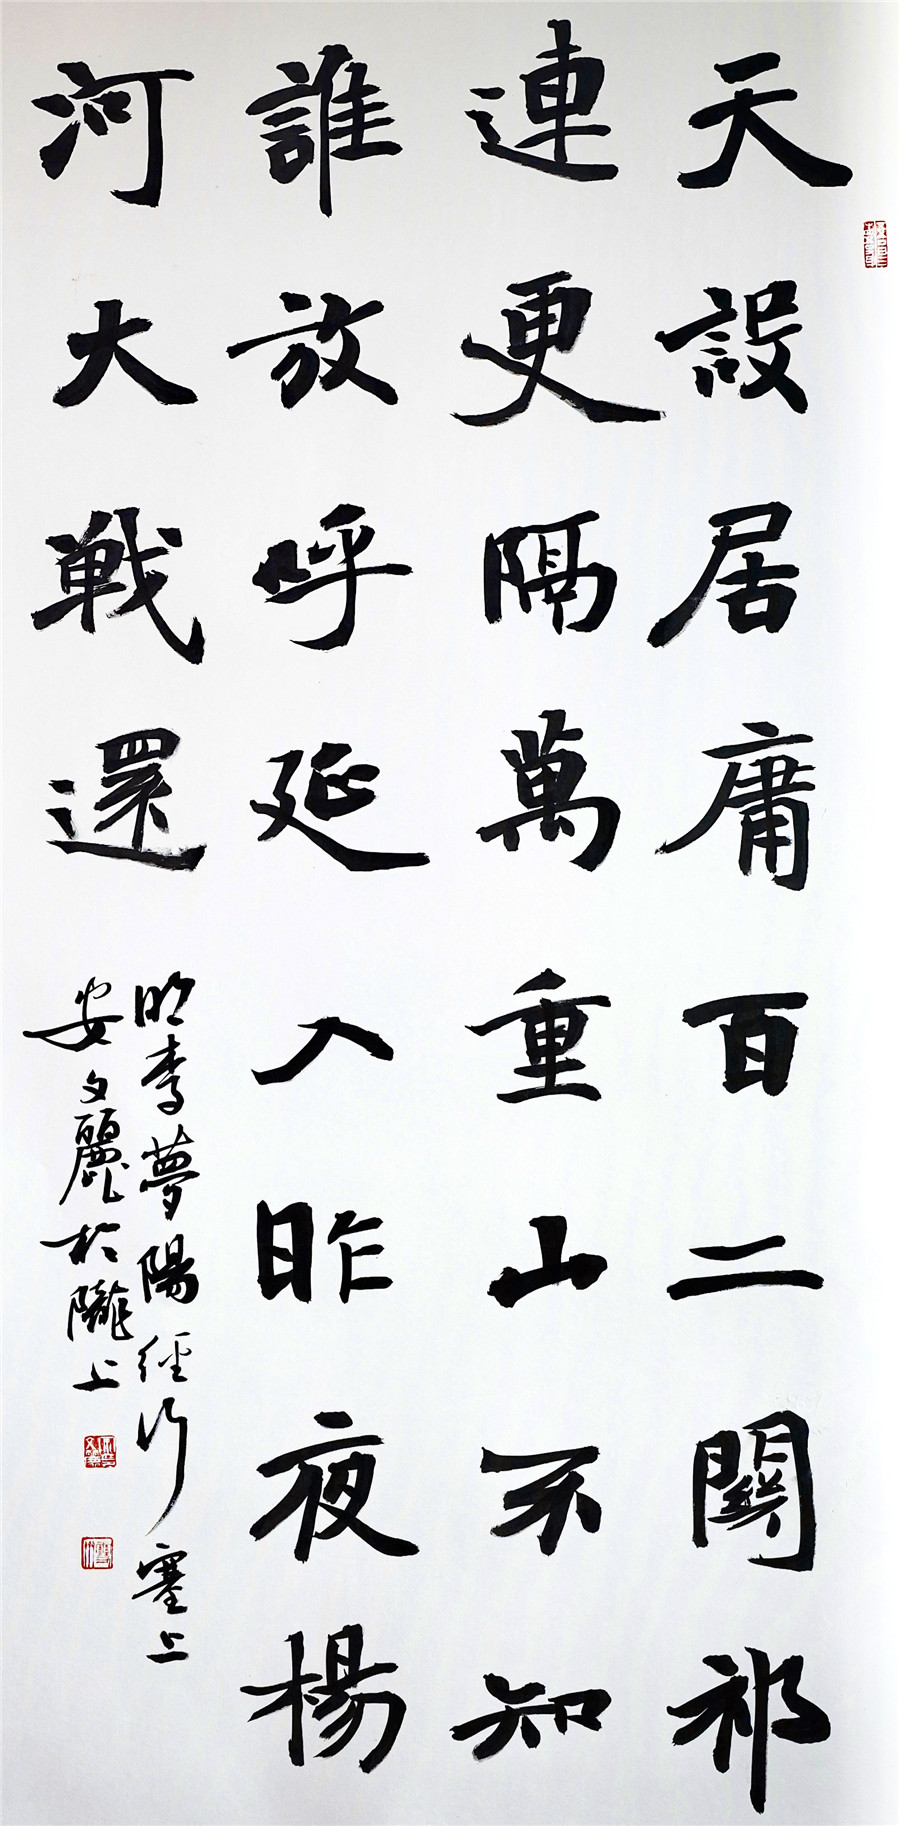 天設居庸百二關祁
連更隔萬重山不知
誰放呼延入昨夜楊
河大戰還
明李夢陽經行塞上
安文麗於隴上